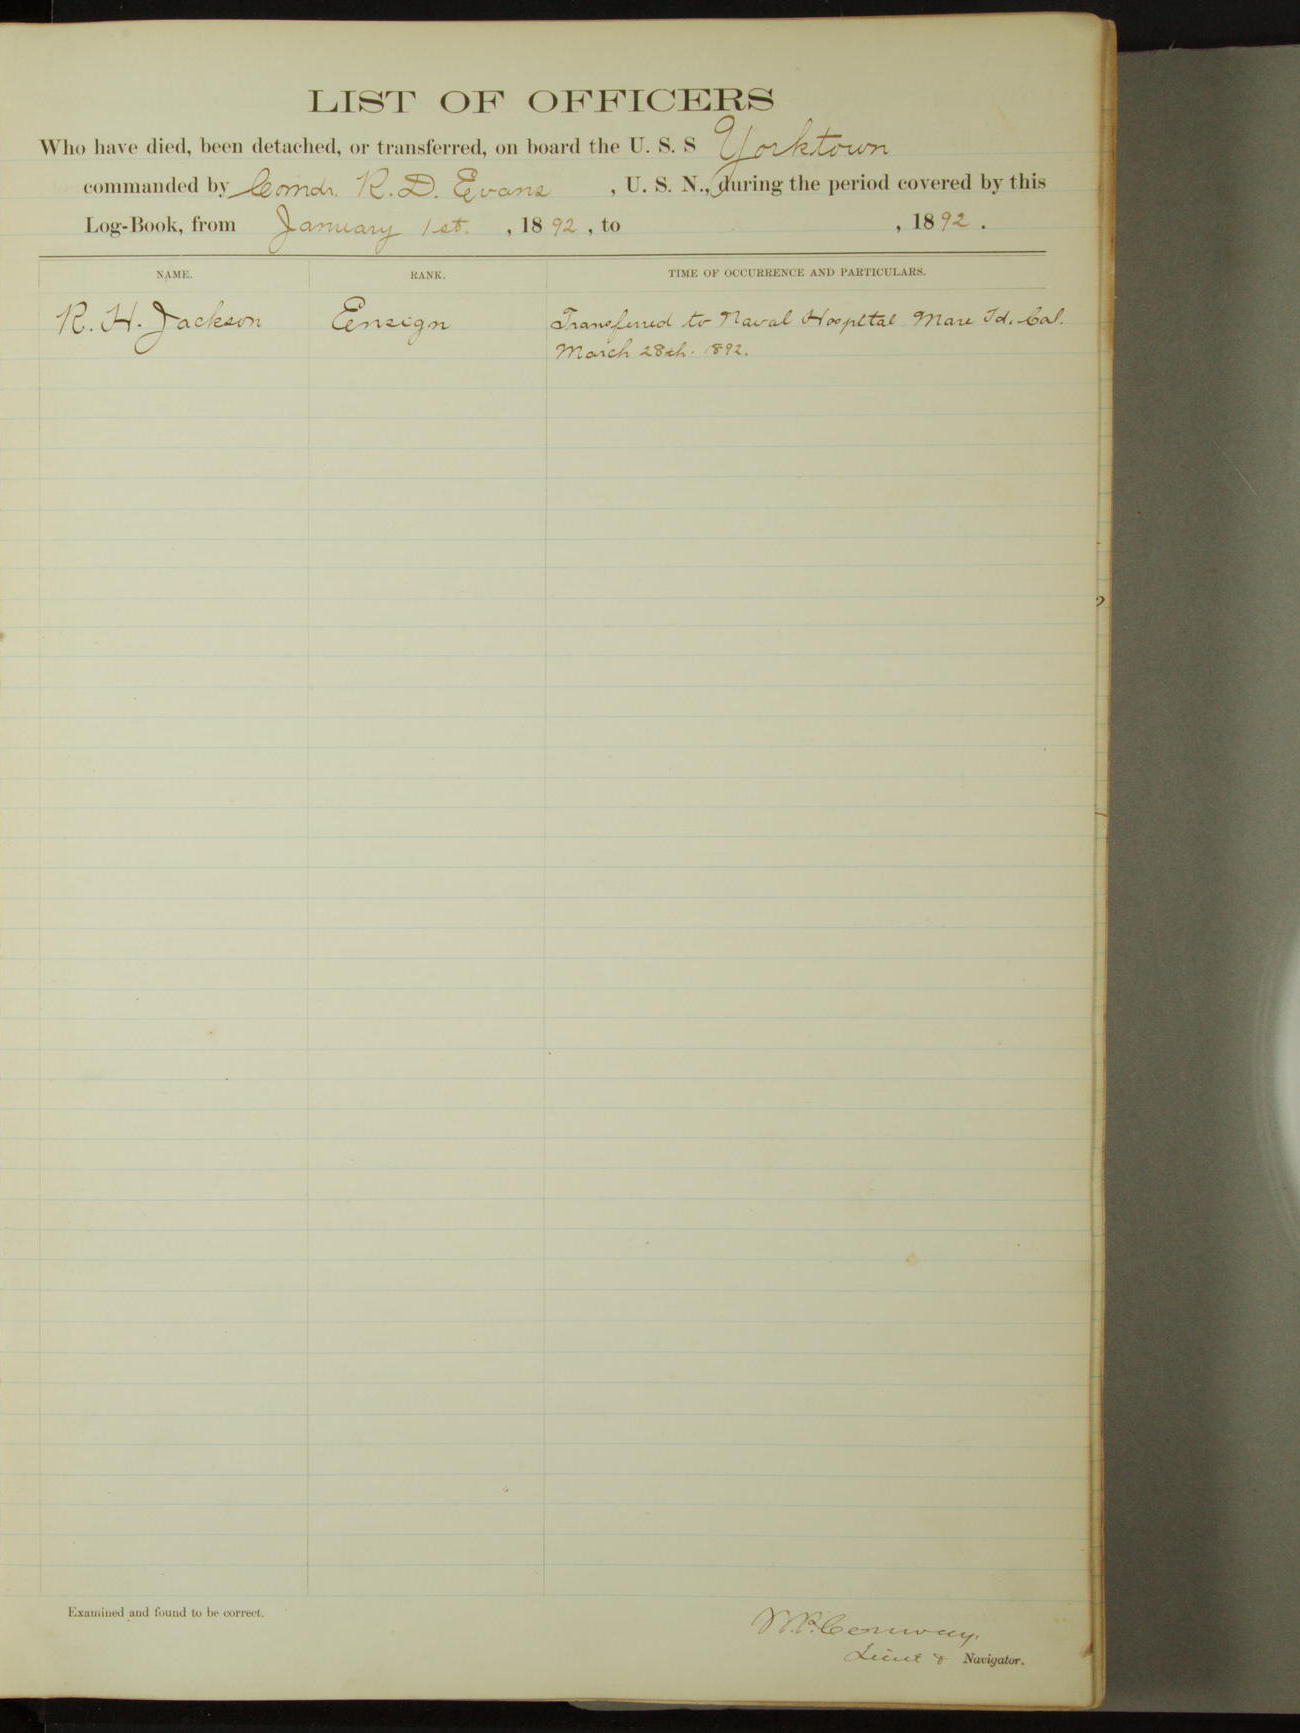 LIST OF OFFICERS
Who have died, been detached, or transferred, on board the U. S. S Yorktown
commanded by Comdr. R. D. Evans , U. S. N., during the period covered by this
Log-Book, from January 1st. , 1892 , to , 1892 .
NAME. RANK. TIME OF OCCURRENCE AND PARTICULARS.
R. H. Jackson Ensign Transferred to Naval Hospital Mare Id. Cal.
March 28th. 1892.
Examined and found to be correct.
W.P. Conway.
Lieut & Navigator.